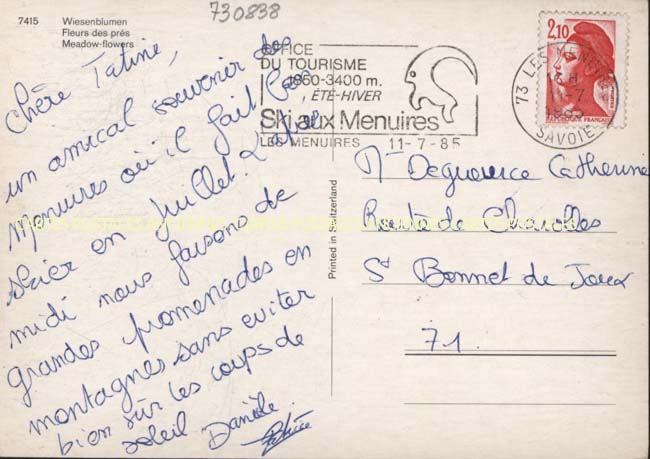 7415 Wiesenblumen
Fleurs des prés
Meadow-flowers
730838
OFFICE
DU TOURISME
1850-3400 m.
ÉTÉ-HIVER
Ski aux Menuires
LES MENUIRES 11-7-85
2,10
73 LES MENUIRES
SAVOIE
Chère Tatine,
un amical souvenir des
Menuires où il fait bon
skier en Juillet. L'après
midi nous faisons de
grandes promenades en
montagnes sans eviter
bien sûr les coups de
soleil Danièle
Printed in Switzerland
Catherine
Route de Charolles
St Bonnet de Joux
71.